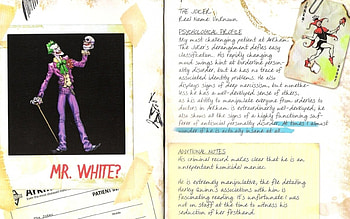 MR. WHITE?
ARK
PATIENT
THE JOKER
Real Name: Unknown
PSYCHOLOGICAL PROFILE
My most challenging patient at Arkham.
The Joker's derangement defies easy
classification. His rapidly changing
mood swings hint at borderline person-
ality disorder, but he has no trace of
associated identity problems. He also
displays signs of deep narcissism, but nonethe-
less he has a well-developed sense of others,
as his ability to manipulate everyone from orderlies to
doctors in Arkham is extraordinarily well-developed. He
also shows all the signs of a highly functioning suf-
ferer of antisocial personality disorder. At times I almost
wonder if he is actually insane at all.
ADDITIONAL NOTES
His criminal record makes clear that he is an
unrepentant homicidal maniac.
He is extremely manipulative, the file detailing
Harley Quinn's association with him is
fascinating reading. It's unfortunate I was
not on staff at the time to witness his
seduction of her firsthand.